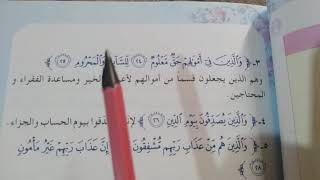 ٣- وَالَّذِينَ فِي أَمْوَالِهِمْ حَقٌّ مَعْلُومٌ ﴿٢٤﴾ لِلسَّائِلِ وَالْمَحْرُومِ ﴿٢٥﴾
وهم الذين يجعلون قسماً من أموالهم لأعمال الخير ومساعدة الفقراء و
المحتاجين.
٤- وَالَّذِينَ يُصَدِّقُونَ بِيَوْمِ الدِّينِ ﴿٢٦﴾ صدقوا بيوم الحساب والجزاء.
٥- وَالَّذِينَ هُمْ مِنْ عَذَابِ رَبِّهِمْ مُشْفِقُونَ إِنَّ عَذَابَ رَبِّهِمْ غَيْرُ مَأْمُونٍ
﴿٢٨﴾